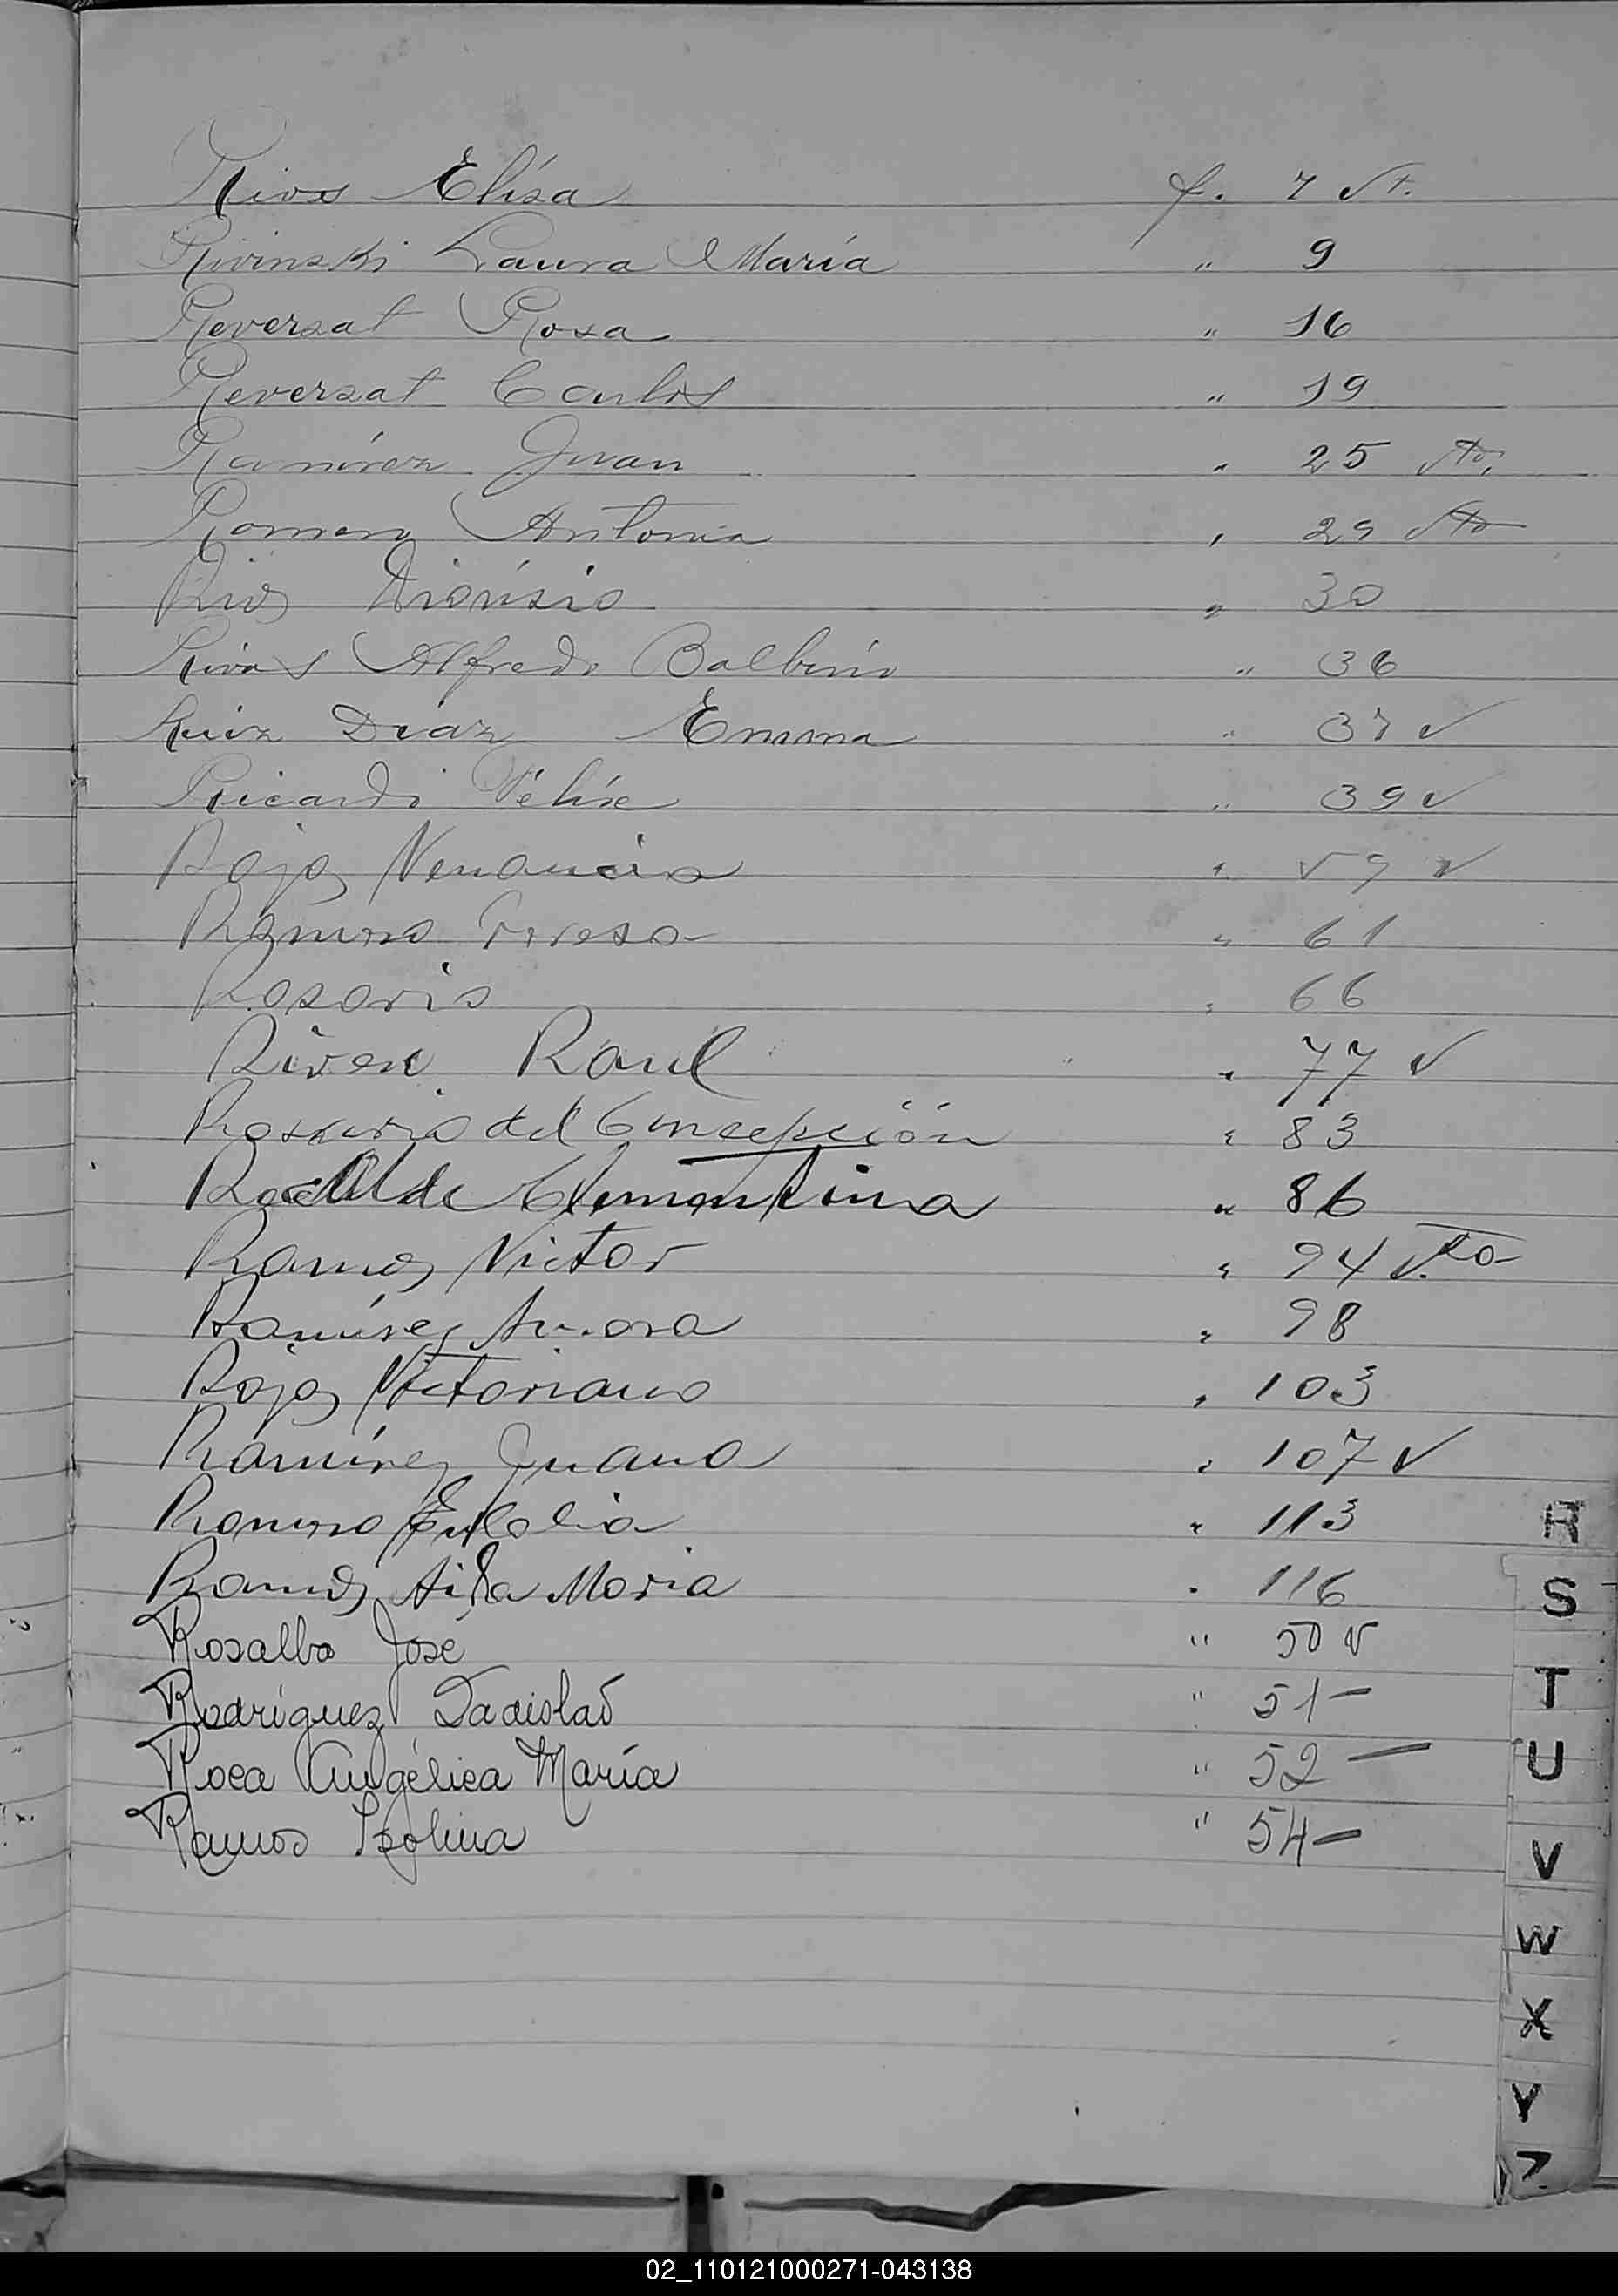 Rivas Elísa f. 7 vt.
Rivinski Laura María " 9
Reversat Rosa " 16
Reversat Carlos " 19
Ramírez Juan " 25 vto.
Romero Antonia " 29 vto
Rios Dionísio " 30
Rivas Alfredo Balbino " 36
Ruiz Diaz Emma " 37 v
Ricardi Félix " 39 v
Rojas Venancia " 59 v
Romero Teresa " 61
Rosario " 66
Raul " 77 v
Rosario del Concepción " 83
de Clementina " 86
Ramos Victor " 94 v.to
Ramírez Aurora " 98
Rojas Victoriano " 103
Ramírez Juana " 107 v
Romero Eulalia " 113
Ramos Maria " 116
Rosalba José " 50 v
Rodríguez Ladislao " 51 —
Roca Angélica María " 52 —
Ramos Isolina " 54 —
R
S
T
U
V
W
X
Y
Z
02_110121000271-043138